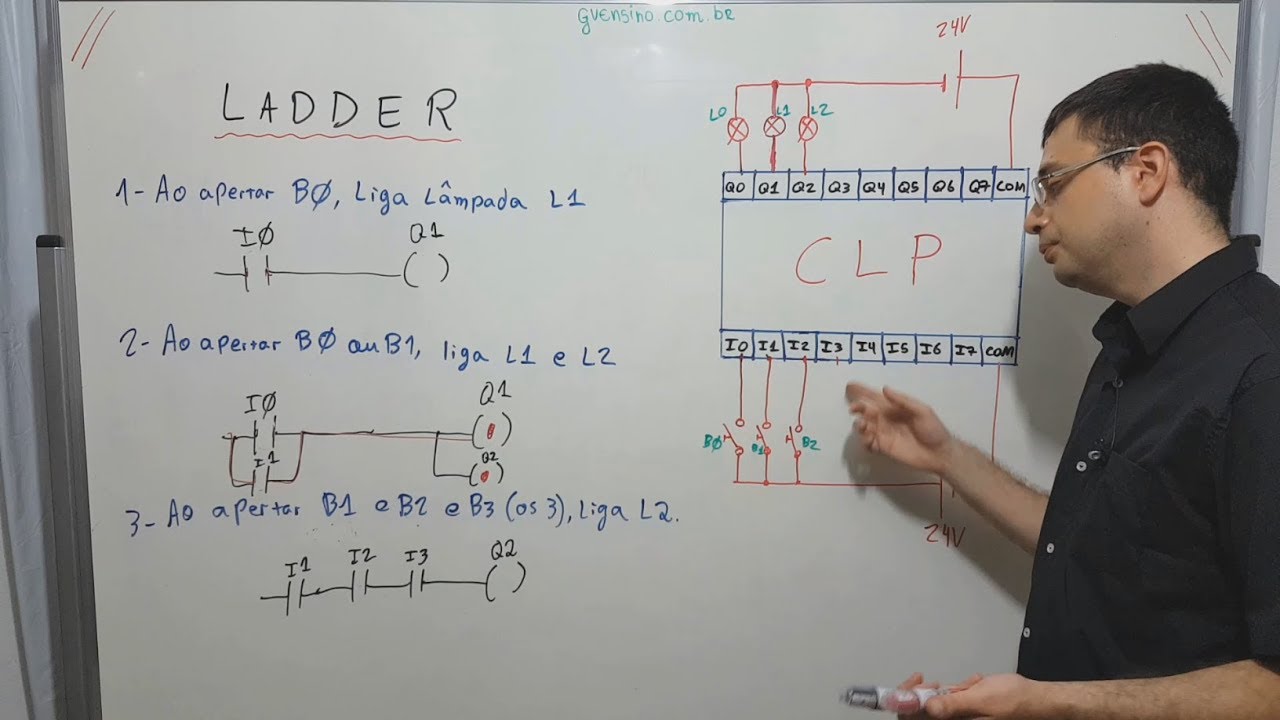 gvensino.com.br
LADDER
1- Ao apertar BØ, Liga Lâmpada L1
IØ Q1
2- Ao apertar BØ ou B1, liga L1 e L2
IØ Q1
I1 Q2
3- Ao apertar B1 e B2 e B3 (os 3), Liga L2.
I1 I2 I3 Q2
24V
L0 L1 L2
Q0 Q1 Q2 Q3 Q4 Q5 Q6 Q7 COM
CLP
I0 I1 I2 I3 I4 I5 I6 I7 COM
BØ B1 B2
24V